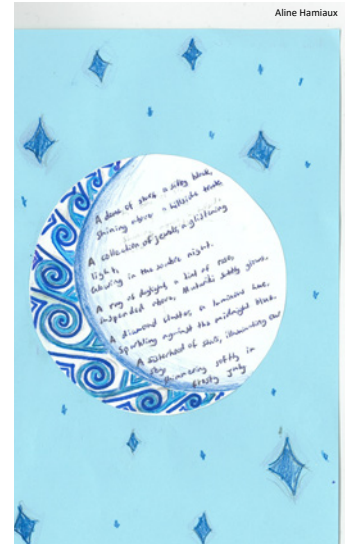 Aline Hamiaux
A dance of stars a silky black,
Shining above a hillside
A collection of jewels, a glistening
light,
Glowing in the winter night.
A ray of daylight, a kind of rose,
suspended above, Matariki softly glows.
A diamond cluster, a luminous hue,
Sparkling against the midnight
A sisterhood of stars, illuminating our
sky
Shimmering softly in
frosty July